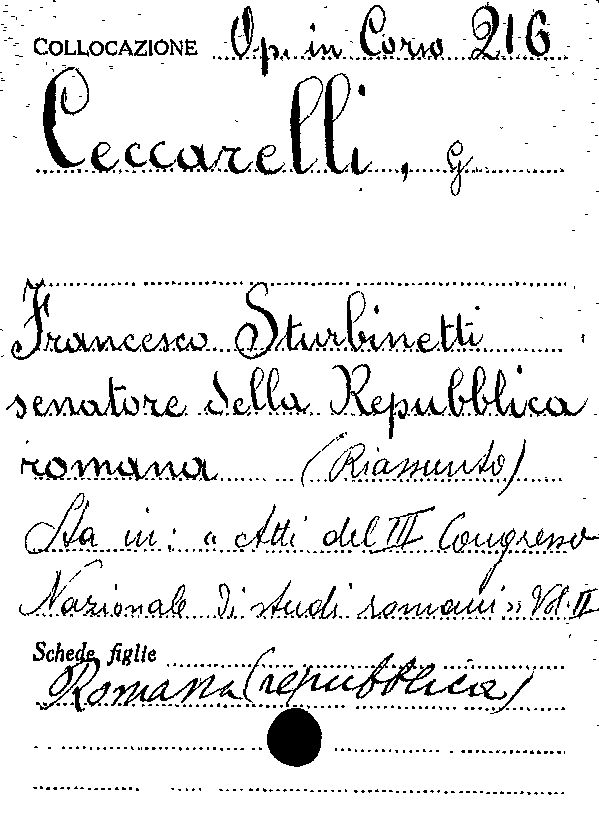 COLLOCAZIONE Op. in Corso 216
Ceccarelli, G.
Francesco Sturbinetti
senatore della Repubblica
romana (Riassunto)
Sta in: « Atti del III Congresso
Nazionale di studi romani» Vol. II
Schede figlie
Romana (repubblica)